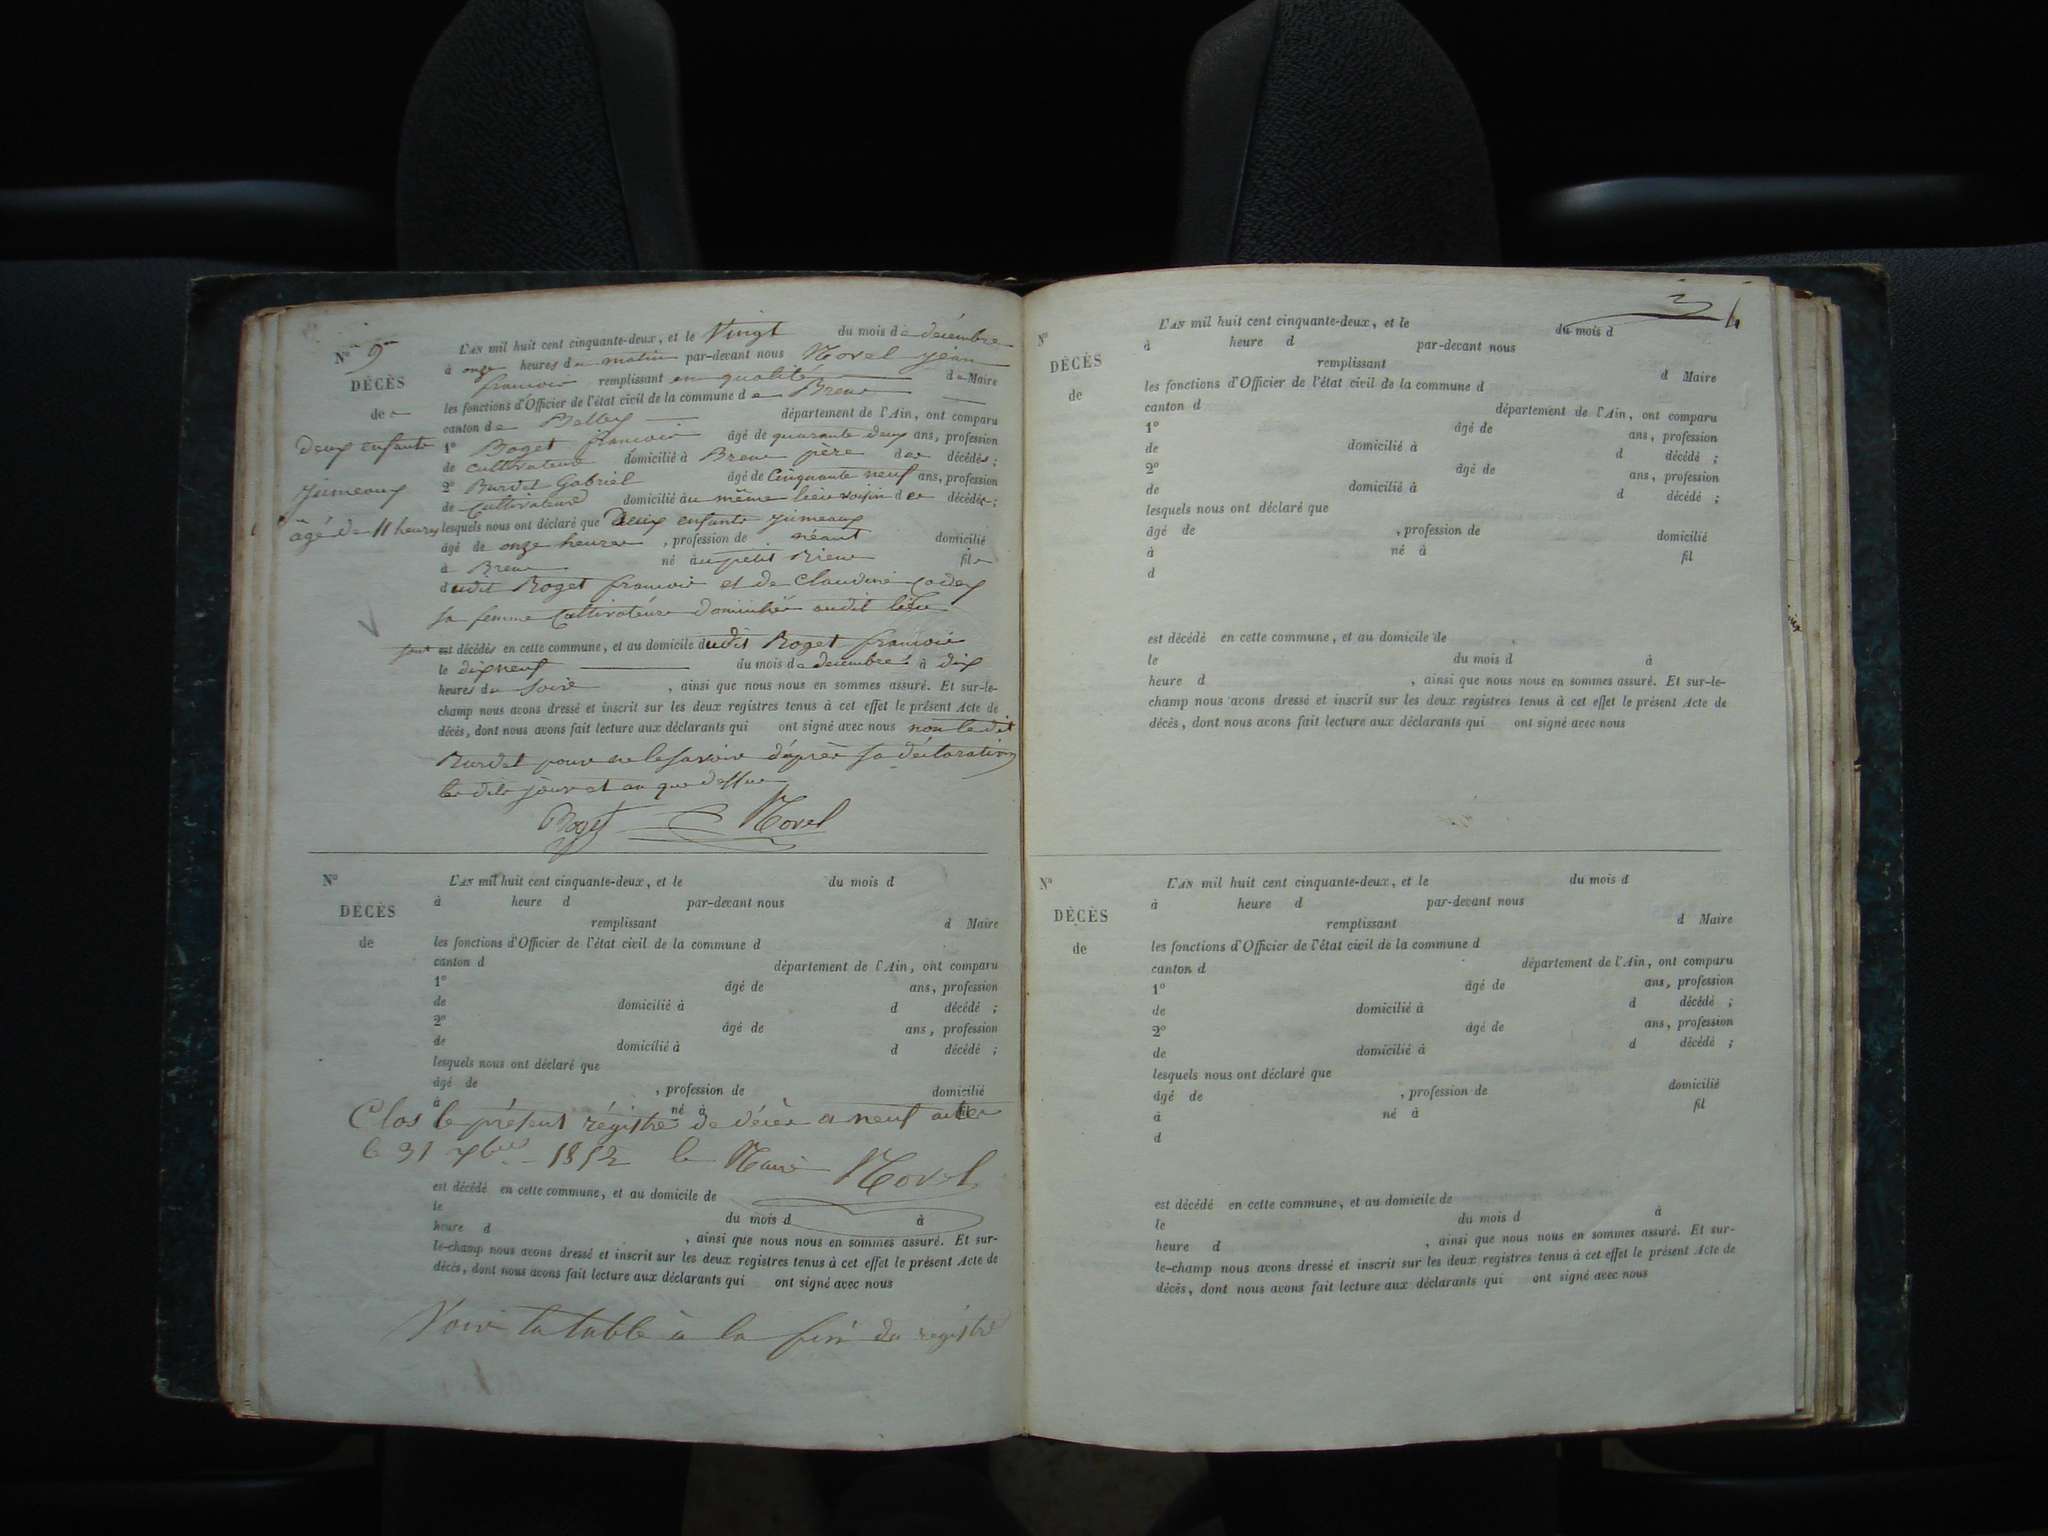 N° 9
DÉCÈS
de
Deux enfants
jumeaux
âgé de 11 heures
L'AN mil huit cent cinquante-deux, et le Vingt du mois de décembre
à onze heures du matin par-devant nous Morel jean
francois remplissant en qualité de Maire
les fonctions d'Officier de l'état civil de la commune de Brens
canton de Belley département de l'Ain, ont comparu
1° Roget francois âgé de quarante deux ans, profession
de cultivateur domicilié à Brens père des décédés ;
2° Burdet Gabriel âgé de Cinquante neuf ans, profession
de Cultivateur domicilié au même lieu voisin des décédés ;
lesquels nous ont déclaré que Deux enfants jumeaux
âgé de onze heures , profession de néant domicilié
à Brens né au petit Brens fils
dudit Roget francois et de Claudine
sa femme Cultivateurs domiciliés audit lieu
sont est décédés en cette commune, et au domicile dudit Roget francois
le dix neuf du mois de decembre à dix
heures du soir , ainsi que nous nous en sommes assuré. Et sur-le-
champ nous avons dressé et inscrit sur les deux registres tenus à cet effet le présent Acte de
décès, dont nous avons fait lecture aux déclarants qui ont signé avec nous non le dit
Burdet pour ne le savoir d'après sa déclaration
les dits jour et an que dessus
Roget Morel
N°
DÉCÈS
de
L'AN mil huit cent cinquante-deux, et le du mois d
à heure d par-devant nous
remplissant d Maire
les fonctions d'Officier de l'état civil de la commune d
canton d département de l'Ain, ont comparu
1° âgé de ans, profession
de domicilié à d décédé ;
2° âgé de ans, profession
de domicilié à d décédé ;
lesquels nous ont déclaré que
âgé de , profession de domicilié
à né à fil
Clos le présent régistre de décès a neuf actes
le 31 xbre 1852 le Maire Morel
est décédé en cette commune, et au domicile de
le du mois d à
heure d , ainsi que nous nous en sommes assuré. Et sur-
le-champ nous avons dressé et inscrit sur les deux registres tenus à cet effet le présent Acte de
décès, dont nous avons fait lecture aux déclarants qui ont signé avec nous
Voir la table à la fin du registre
N°
DÉCÈS
de
L'AN mil huit cent cinquante-deux, et le du mois d
à heure d par-devant nous
remplissant d Maire
les fonctions d'Officier de l'état civil de la commune d
canton d département de l'Ain, ont comparu
1° âgé de ans, profession
de domicilié à d décédé ;
2° âgé de ans, profession
de domicilié à d décédé ;
lesquels nous ont déclaré que
âgé de , profession de domicilié
à né à fil
d
est décédé en cette commune, et au domicile de
le du mois d à
heure d , ainsi que nous nous en sommes assuré. Et sur-le-
champ nous avons dressé et inscrit sur les deux registres tenus à cet effet le présent Acte de
décès, dont nous avons fait lecture aux déclarants qui ont signé avec nous
N°
DÉCÈS
de
L'AN mil huit cent cinquante-deux, et le du mois d
à heure d par-devant nous
remplissant d Maire
les fonctions d'Officier de l'état civil de la commune d
canton d département de l'Ain, ont comparu
1° âgé de ans, profession
de domicilié à d décédé ;
2° âgé de ans, profession
de domicilié à d décédé ;
lesquels nous ont déclaré que
âgé de , profession de domicilié
à né à fil
d
est décédé en cette commune, et au domicile de
le du mois d à
heure d , ainsi que nous nous en sommes assuré. Et sur-
le-champ nous avons dressé et inscrit sur les deux registres tenus à cet effet le présent Acte de
décès, dont nous avons fait lecture aux déclarants qui ont signé avec nous